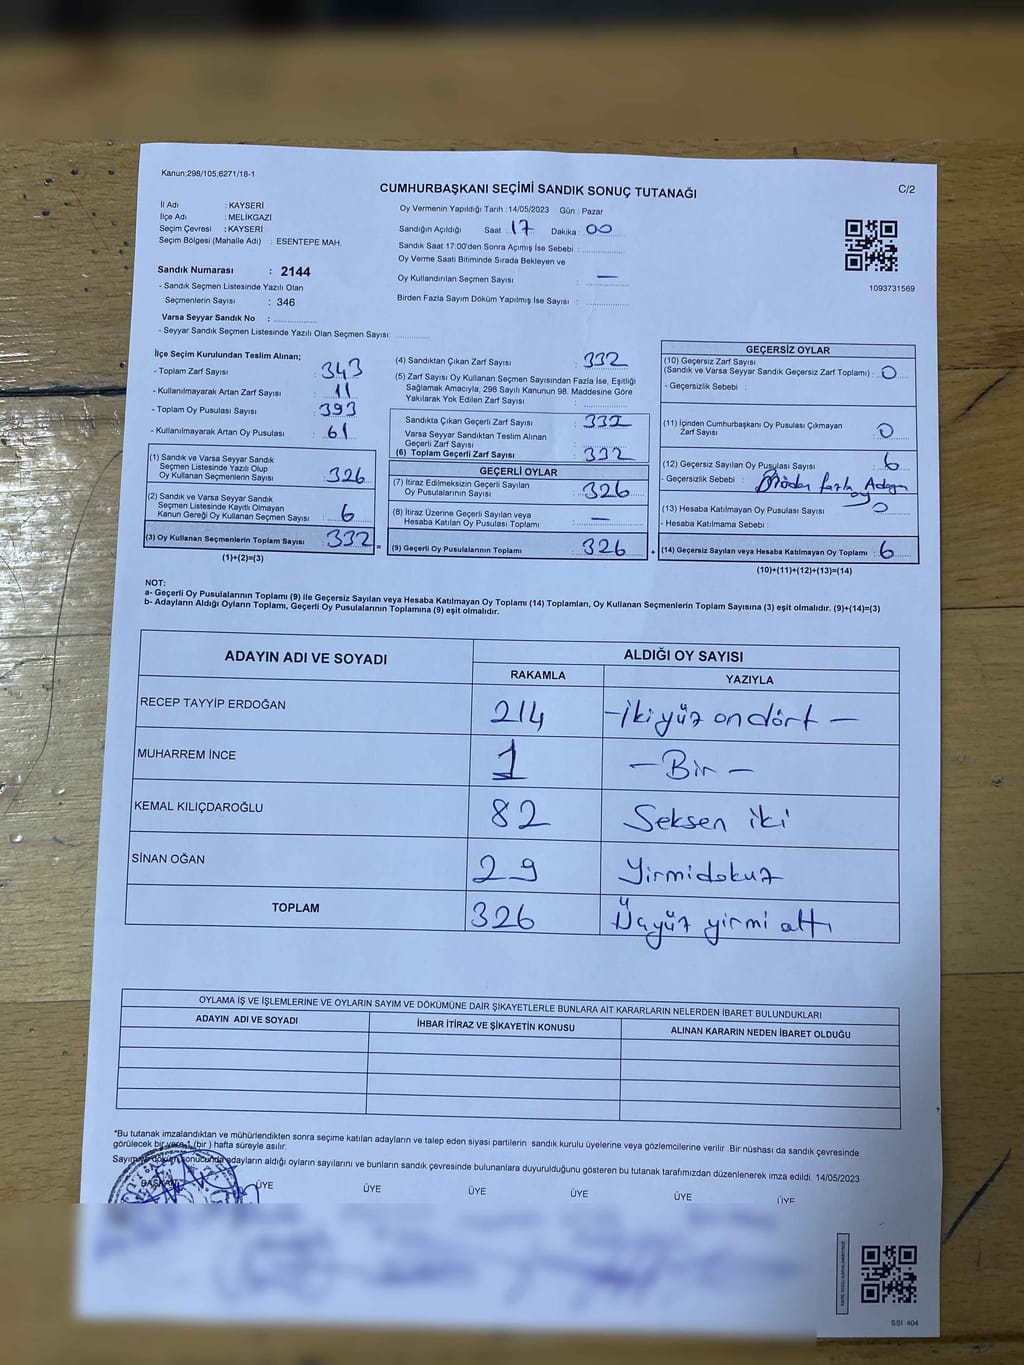 Kanun;298/105,6271/18-1
CUMHURBAŞKANI SEÇİMİ SANDIK SONUÇ TUTANAĞI
C/2
İl Adı : KAYSERİ
İlçe Adı : MELİKGAZİ
Seçim Çevresi : KAYSERİ
Seçim Bölgesi (Mahalle Adı) : ESENTEPE MAH.
Sandık Numarası : 2144
- Sandık Seçmen Listesinde Yazılı Olan
Seçmenlerin Sayısı : 346
Varsa Seyyar Sandık No :
- Seyyar Sandık Seçmen Listesinde Yazılı Olan Seçmen Sayısı:
Oy Vermenin Yapıldığı Tarih :14/05/2023 Gün : Pazar
Sandığın Açıldığı Saat : 17 Dakika : 00
Sandık Saat 17:00'den Sonra Açımış İse Sebebi :
Oy Verme Saati Bitiminde Sırada Bekleyen ve
Oy Kullandırılan Seçmen Sayısı : —
Birden Fazla Sayım Döküm Yapılmış İse Sayısı :
1093731569
İlçe Seçim Kurulundan Teslim Alınan;
- Toplam Zarf Sayısı : 343
- Kullanılmayarak Artan Zarf Sayısı : 11
- Toplam Oy Pusulası Sayısı : 393
- Kullanılmayarak Artan Oy Pusulası : 61
(1) Sandık ve Varsa Seyyar Sandık
Seçmen Listesinde Yazılı Olup
Oy Kullanan Seçmenlerin Sayısı : 326
(2) Sandık ve Varsa Seyyar Sandık
Seçmen Listesinde Kayıtlı Olmayan
Kanun Gereği Oy Kullanan Seçmen Sayısı : 6
(3) Oy Kullanan Seçmenlerin Toplam Sayısı : 332 =
(1)+(2)=(3)
(4) Sandıktan Çıkan Zarf Sayısı : 332
(5) Zarf Sayısı Oy Kullanan Seçmen Sayısından Fazla İse, Eşitliği
Sağlamak Amacıyla, 298 Sayılı Kanunun 98. Maddesine Göre
Yakılarak Yok Edilen Zarf Sayısı :
Sandıkta Çıkan Geçerli Zarf Sayısı : 332
Varsa Seyyar Sandıktan Teslim Alınan
Geçerli Zarf Sayısı :
(6) Toplam Geçerli Zarf Sayısı : 332
GEÇERLİ OYLAR
(7) İtiraz Edilmeksizin Geçerli Sayılan
Oy Pusulalarının Sayısı : 326
(8) İtiraz Üzerine Geçerli Sayılan veya
Hesaba Katılan Oy Pusulası Toplamı : —
(9) Geçerli Oy Pusulalarının Toplamı : 326 +
GEÇERSİZ OYLAR
(10) Geçersiz Zarf Sayısı
(Sandık ve Varsa Seyyar Sandık Geçersiz Zarf Toplamı) : 0
- Geçersizlik Sebebi :
(11) İçinden Cumhurbaşkanı Oy Pusulası Çıkmayan
Zarf Sayısı : 0
(12) Geçersiz Sayılan Oy Pusulası Sayısı : 6
- Geçersizlik Sebebi : Birden fazla Adaya
oy
(13) Hesaba Katılmayan Oy Pusulası Sayısı : 0
- Hesaba Katılmama Sebebi :
(14) Geçersiz Sayılan veya Hesaba Katılmayan Oy Toplamı : 6
(10)+(11)+(12)+(13)=(14)
NOT:
a- Geçerli Oy Pusulalarının Toplamı (9) ile Geçersiz Sayılan veya Hesaba Katılmayan Oy Toplamı (14) Toplamları, Oy Kullanan Seçmenlerin Toplam Sayısına (3) eşit olmalıdır. (9)+(14)=(3)
b- Adayların Aldığı Oyların Toplamı, Geçerli Oy Pusulalarının Toplamına (9) eşit olmalıdır.
ADAYIN ADI VE SOYADI ALDIĞI OY SAYISI
RAKAMLA YAZIYLA
RECEP TAYYİP ERDOĞAN 214 -ikiyüz ondört-
MUHARREM İNCE 1 -Bir-
KEMAL KILIÇDAROĞLU 82 Seksen iki
SİNAN OĞAN 29 Yirmidokuz
TOPLAM 326 Üçyüz yirmi altı
OYLAMA İŞ VE İŞLEMLERİNE VE OYLARIN SAYIM VE DÖKÜMÜNE DAİR ŞİKAYETLERLE BUNLARA AİT KARARLARIN NELERDEN İBARET BULUNDUKLARI
ADAYIN ADI VE SOYADI İHBAR İTİRAZ VE ŞİKAYETİN KONUSU ALINAN KARARIN NEDEN İBARET OLDUĞU
*Bu tutanak imzalandıktan ve mühürlendikten sonra seçime katılan adayların ve talep eden siyasi partilerin sandık kurulu üyelerine veya gözlemcilerine verilir .Bir nüshası da sandık çevresinde
görülecek bir yere 1 (bir ) hafta süreyle asılır.
Sayım ve döküm sonucunda adayların aldığı oyların sayılarını ve bunların sandık çevresinde bulunanlara duyurulduğunu gösteren bu tutanak tarafımızdan düzenlenerek imza edildi. 14/05/2023
BAŞKAN ÜYE ÜYE ÜYE ÜYE ÜYE ÜYE
SSI 404